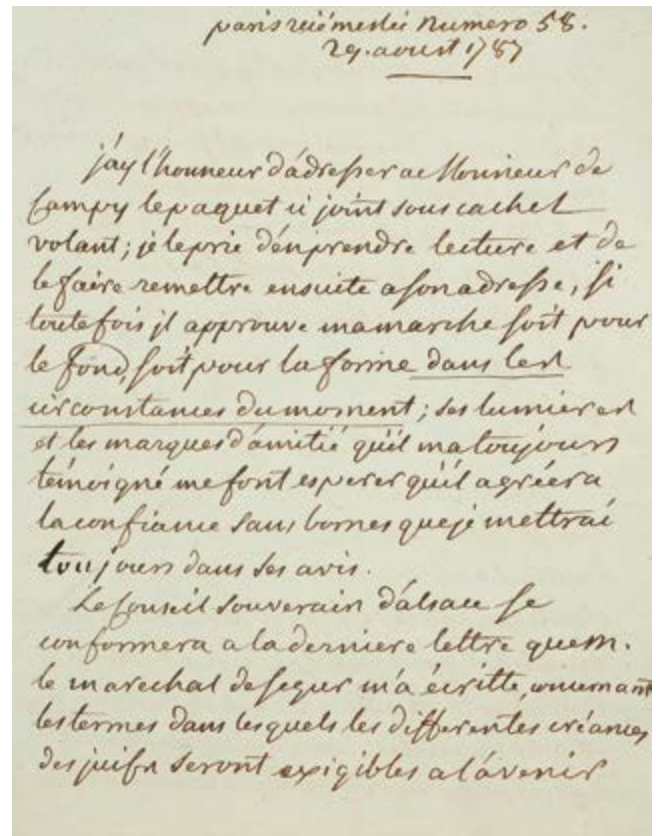 paris rüe meslée numero 58.
29. aoust 1787
j'ay l'honneur d'adresser a Monsieur de
Campy le paquet ci joint sous cachet
volant; je le prie d'en prendre lecture et de
le faire remettre ensuite a son adresse, si
toutefois jl approuve ma marche soit pour
le fond, soit pour la forme dans les
circonstances du moment; ses lumieres
et les marques d'amitié qu'il m'a toujours
témoigné me font esperer qu'il agréera
la confiance sans bornes que je mettrai
toujours dans ses avis.
Le Conseil souverain d'alsace se
conformera a la derniere lettre que m.
le marechal de segur m'a écritte, concernant
les termes dans lesquels les differentes créances
des juifs seront exigibles a l'avenir